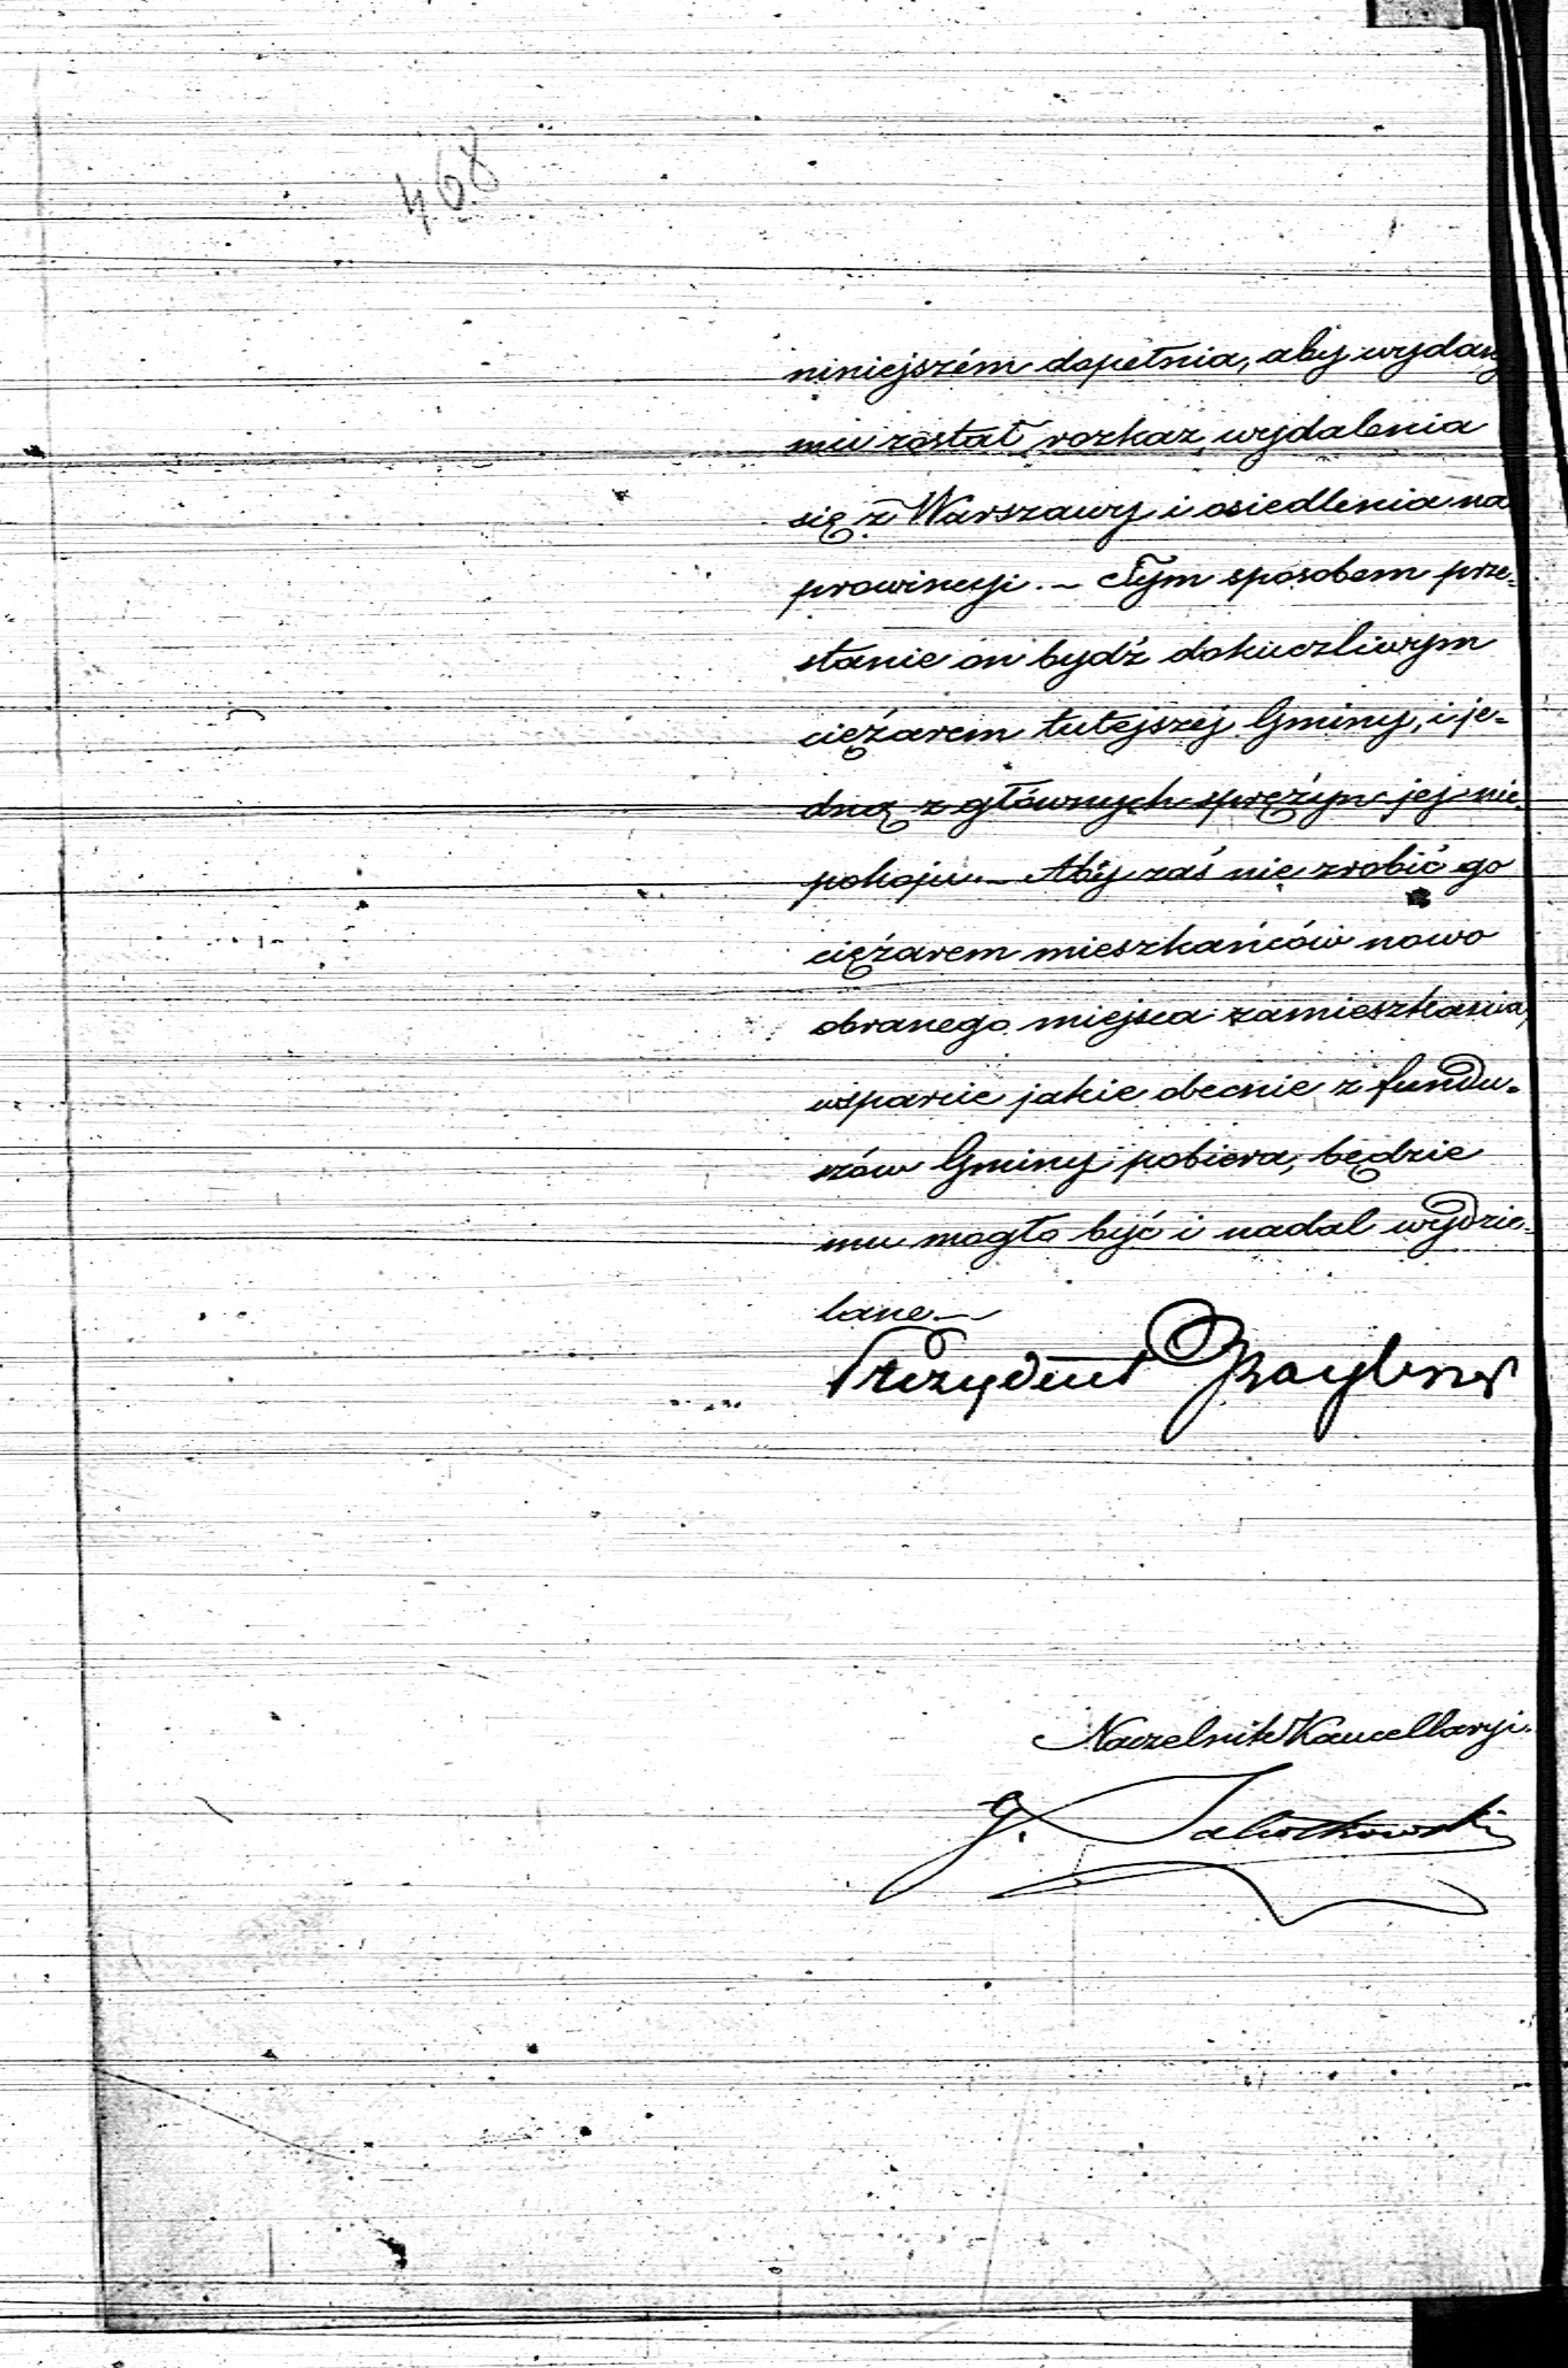 468
niniejszém dopełnia, aby wydany
mu został rozkaz wydalenia
się z Warszawy i osiedlenia na
prowincyi. – Tym sposobem prze-
stanie on bydź dokuczliwym
ciężarem tutejszéj Gminy, i je-
dną z głównych sprężyn jej nie-
pokoju. – Aby zaś nie zrobić go
ciężarem mieszkańców nowo
obranego miejsca zamieszkania,
wsparcie jakie obecnie z fundu-
szów Gminy pobiera, będzie
mu mogło być i nadal wydzie-
lane. –
Prezydent
Naczelnik Kancellaryi.